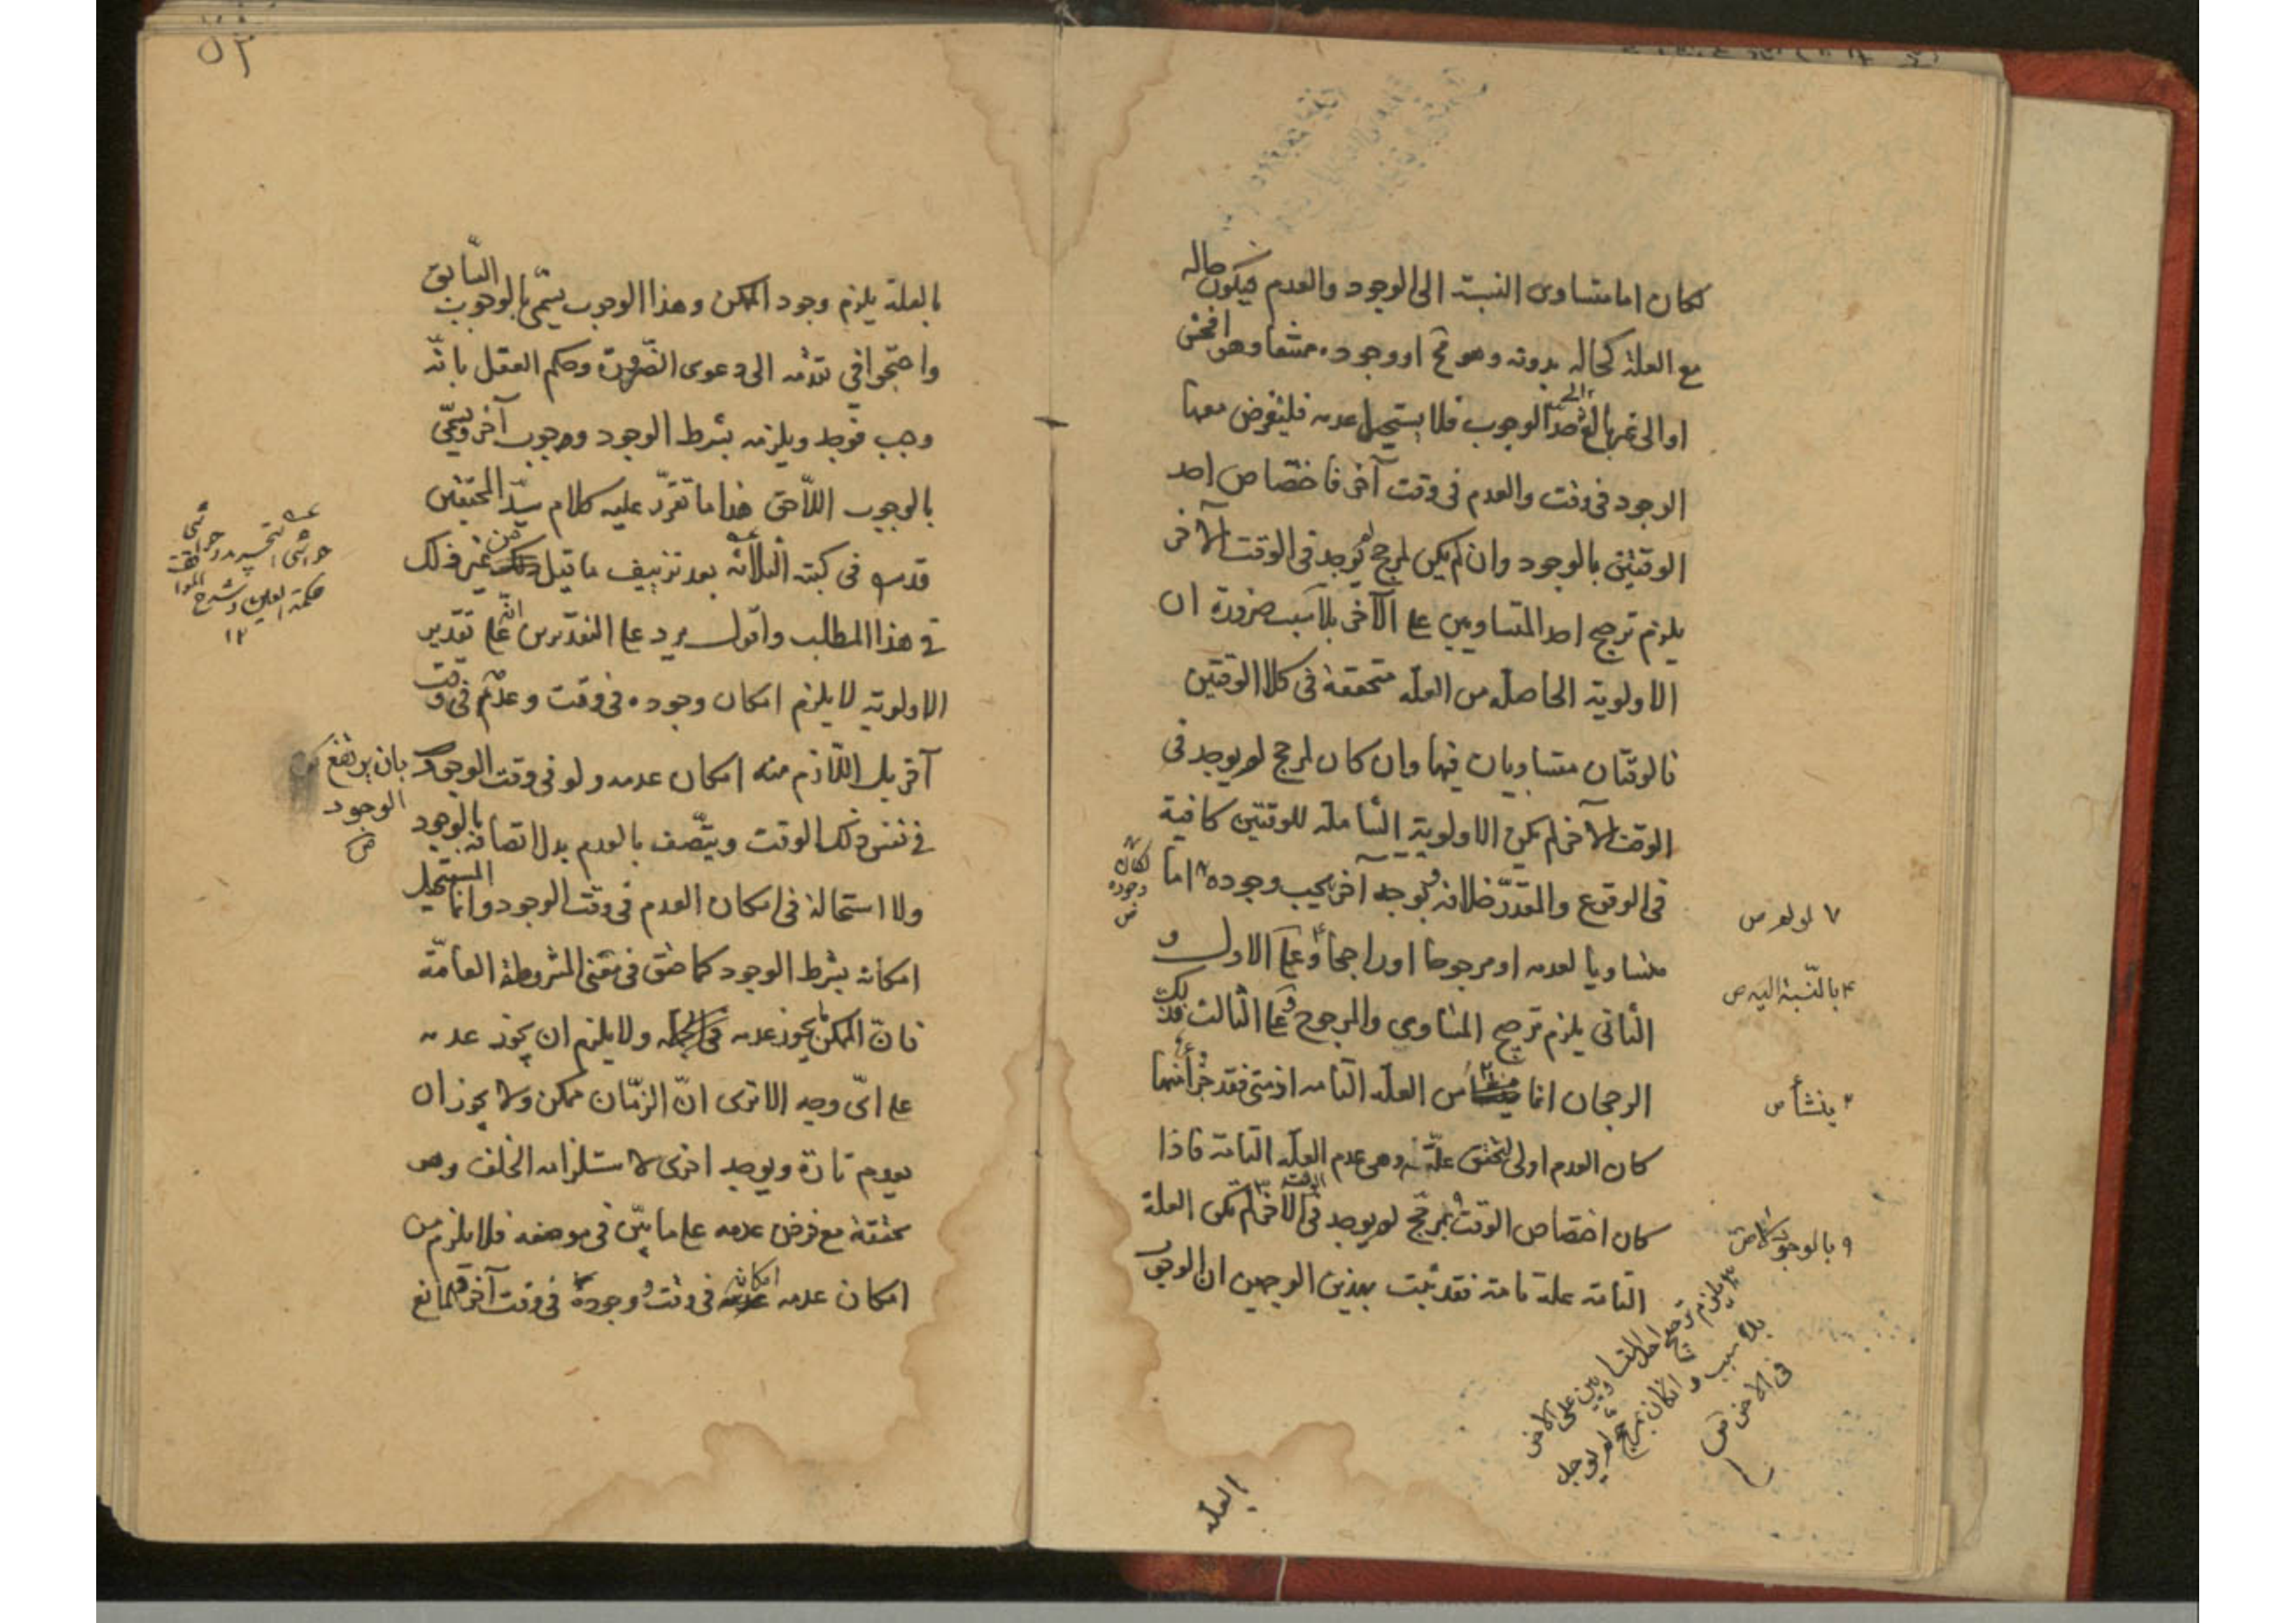 لكان اما متساوى النسبة الى الوجود والعدم فيكون حاله
مع العلة كحاله بدونه وهو مح او وجوده ممتنعا وهو افحش
او الى غيرها الغير حد الوجوب فلا يستحيل عدمه فليفرض معها
الوجود فى وقت والعدم فى وقت آخر فاختصاص احد
الوقتين بالوجود وان لم يكن لمرجح لم يوجد فى الوقت الآخر
يلزم ترجيح احد المتساويين على الآخر بلا سبب ضرورة ان
الاولوية الحاصلة من العلة متحققة فى كلا الوقتين
فالوقتان متساويان فيها وان كان لمرجح لم يوجد فى
الوقت الآخر لم يكن الاولوية الشاملة للوقتين كافية
فى الوقوع والمقدر خلافه وبوجه آخر يجب وجوده اما
لكان وجوده
متساويا لعدمه او مرجوحا او راجحا وعلى الاول و
الثانى يلزم ترجيح المتساوى والمرجوح وعلى الثالث فذلك
الرجحان انما من العلة التامة اذ متى فقد جزء منها
كان العدم اولى لتحقق علته وهى عدم العلة التامة فاذا
كان اختصاص الوقت بمرجح لم يوجد فى الوقت الآخر لم يكن العلة
التامة علة تامة فقد ثبت بهذين الوجهين ان الوجوب
لو لم ص
بالنسبة اليه ص
ينشأ ص
بالوجود
يلزم ترجيح احد المتساويين على الآخر
بلا سبب وان كان بمرجح لم يوجد
فى الآخر
العلة
٥٣
بالعلة يلزم وجود الممكن وهذا الوجوب يسمى بالوجوب السابق
واحتجوا فى تقدمه الى دعوى الضرورة وحكم العقل بانه
وجب فوجد ويلزمه بشرط الوجود وجوب آخر ويسمى
بالوجوب اللاحق هذا ما تقرر عليه كلام سيد المحققين
قدس فى كتبه الثلاثة بعد تزييف ما قيل من غير ذلك
فى هذا المطلب واقول يرد على التقديرين انه على تقدير
الاولوية لا يلزم امكان وجوده فى وقت وعدمه فى وقت
آخر بل اللازم منه امكان عدمه ولو فى وقت الوجود بان يرتفع
الوجود
فى نفس ذلك الوقت ويتصف بالعدم بدل اتصافه بالوجود
ولا استحالة فى امكان العدم فى وقت الوجود وانما المستحيل
امكانه بشرط الوجود كما حقق فى معنى المشروطة العامة
فان الممكن يجوز عدمه فى الجملة ولا يلزم ان يجوز عدمه
على اى وجه الا ترى ان الزمان ممكن ولا يجوز ان
يعدم تارة ويوجد اخرى لاستلزامه الخلف وهو
تحققه مع فرض عدمه على ما بين فى موضعه فلا يلزم من
امكان عدمه امكان فى وقت ووجوده فى وقت آخر فلمانع
حواشى التجريد وحواشى
حكمة العين وشرح المواقف
١٢